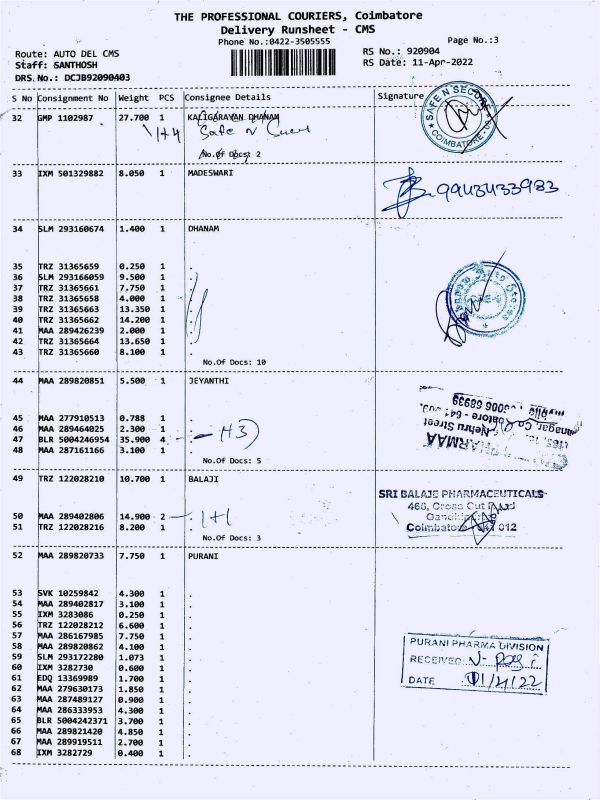 THE PROFESSIONAL COURIERS, Coimbatore
Delivery Runsheet - CMS
Phone No.:0422-3505555
Page No.:3
Route: AUTO DEL CMS
RS No.: 920904
Staff: SANTHOSH
RS Date: 11-Apr-2022
DRS.No.: DCJB92090403
S No Consignment No Weight PCS Consignee Details Signature
32 GMP 1102987 27.700 1 KALIGARAYAN DHANAM
SAFE N SECURE
COIMBATORE
1+4 Safe N
No.Of Docs: 2
33 IXM 501329882 8.050 1 MADESWARI
9943433983
34 SLM 293160674 1.400 1 DHANAM
35 TRZ 31365659 0.250 1 .
36 SLM 293166059 9.500 1 .
37 TRZ 31365661 7.750 1 .
38 TRZ 31365658 4.000 1 .
39 TRZ 31365663 13.350 1 .
40 TRZ 31365662 14.200 1 .
41 MAA 289426239 2.000 1 .
42 TRZ 31365664 13.650 1 .
43 TRZ 31365660 8.100 1 .
No.Of Docs: 10
44 MAA 289820851 5.500 1 JEYANTHI
45 MAA 277910513 0.788 1 .
46 MAA 289464025 2.300 1 .
47 BLR 5004246954 35.900 4 .
48 MAA 287161166 3.100 1 .
Nehru Street
No.Of Docs: 5
49 TRZ 122028210 10.700 1 BALAJI
SRI BALAJE PHARMACEUTICALS
466, Cross Cut Road
50 MAA 289402806 14.900 2 . 1+1
51 TRZ 122028216 8.200 1 .
Coimbatore 641 012
No.Of Docs: 3
52 MAA 289820733 7.750 1 PURANI
53 SVK 10259842 4.300 1 .
54 MAA 289402817 3.100 1 .
55 IXM 3283086 0.250 1 .
56 TRZ 122028212 6.600 1 .
57 MAA 286167985 7.750 1 .
58 MAA 289820862 4.100 1 .
59 SLM 293172280 1.073 1 .
60 IXM 3282730 0.600 1 .
61 EDQ 13369989 1.700 1 .
62 MAA 279630173 1.850 1 .
63 MAA 287489127 0.900 1 .
64 MAA 286333953 4.300 1 .
65 BLR 5004242371 3.700 1 .
66 MAA 289821420 4.850 1 .
67 MAA 289919511 2.700 1 .
68 IXM 3282729 0.400 1 .
PURANI PHARMA DIVISION
RECEIVED:
DATE 11/4/22